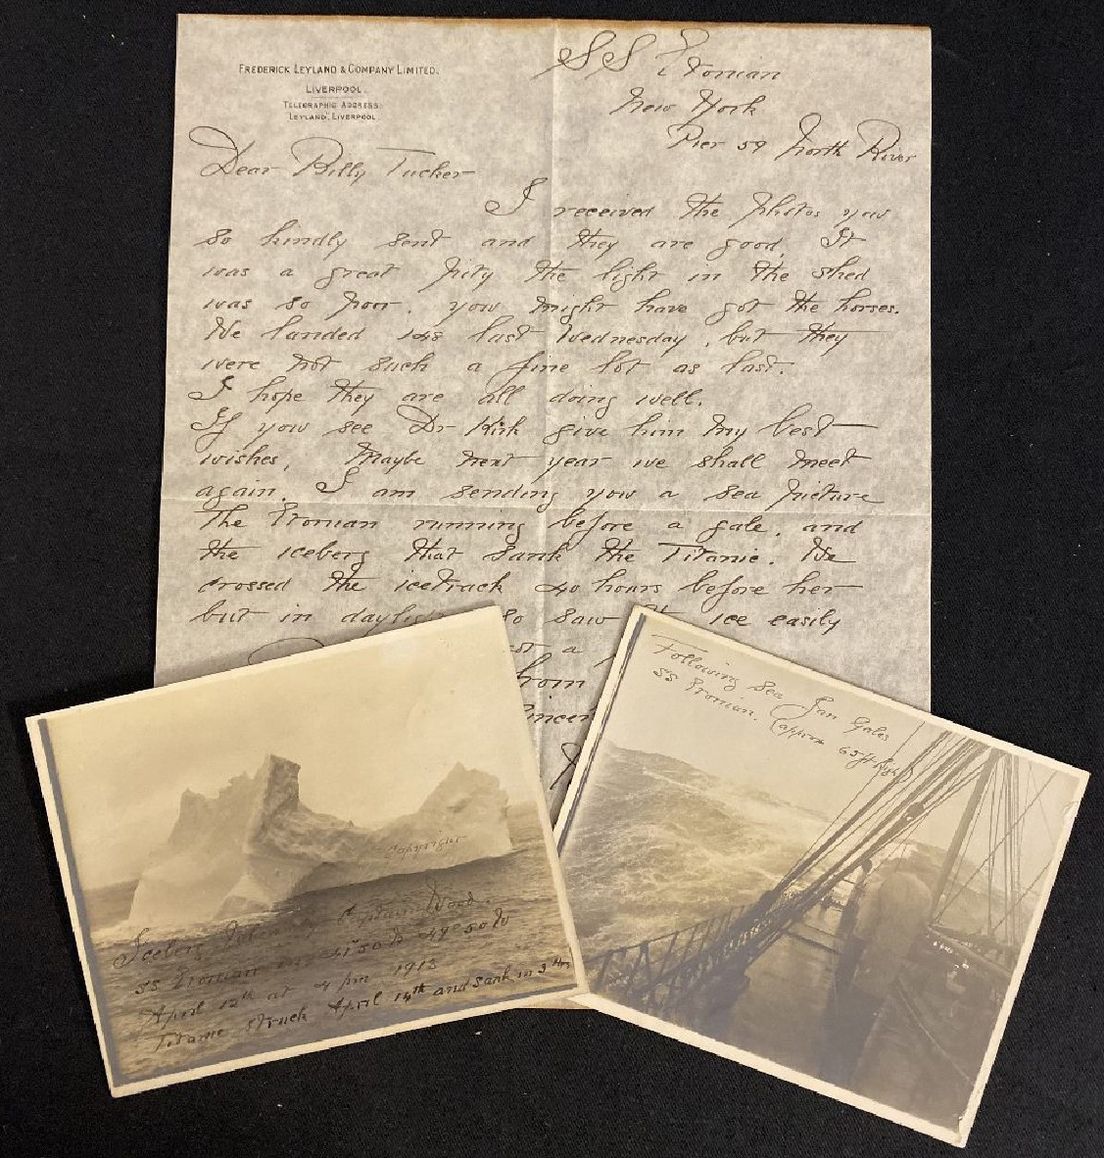 FREDERICK LEYLAND & COMPANY LIMITED.
LIVERPOOL.
TELEGRAPHIC ADDRESS:
"LEYLAND", LIVERPOOL
SS Etonian
New York
Pier 59 North River
Dear Billy Tucker
I received the photos you
so kindly sent and they are good. It
was a great pity the light in the shed
was so poor, you might have got the horses.
We landed 148 last Wednesday, but they
were not such a fine lot as last.
I hope they are all doing well.
If you see Dr Kirk give him my best
wishes, Maybe next year we shall meet
again. I am sending you a sea picture
The Etonian running before a gale, and
the iceberg that sank the Titanic. We
crossed the icetrack 40 hours before her
but in daylight so saw the ice easily
a
from
Copyright
Iceberg taken by Captain Wood.
SS Etonian in 41°50 N 49°50 W
April 12th at 4 pm 1913
Titanic struck April 14th and sank in 3 Hrs
Following Sea Jan Gales
SS Etonian. (approx 65 ft high)